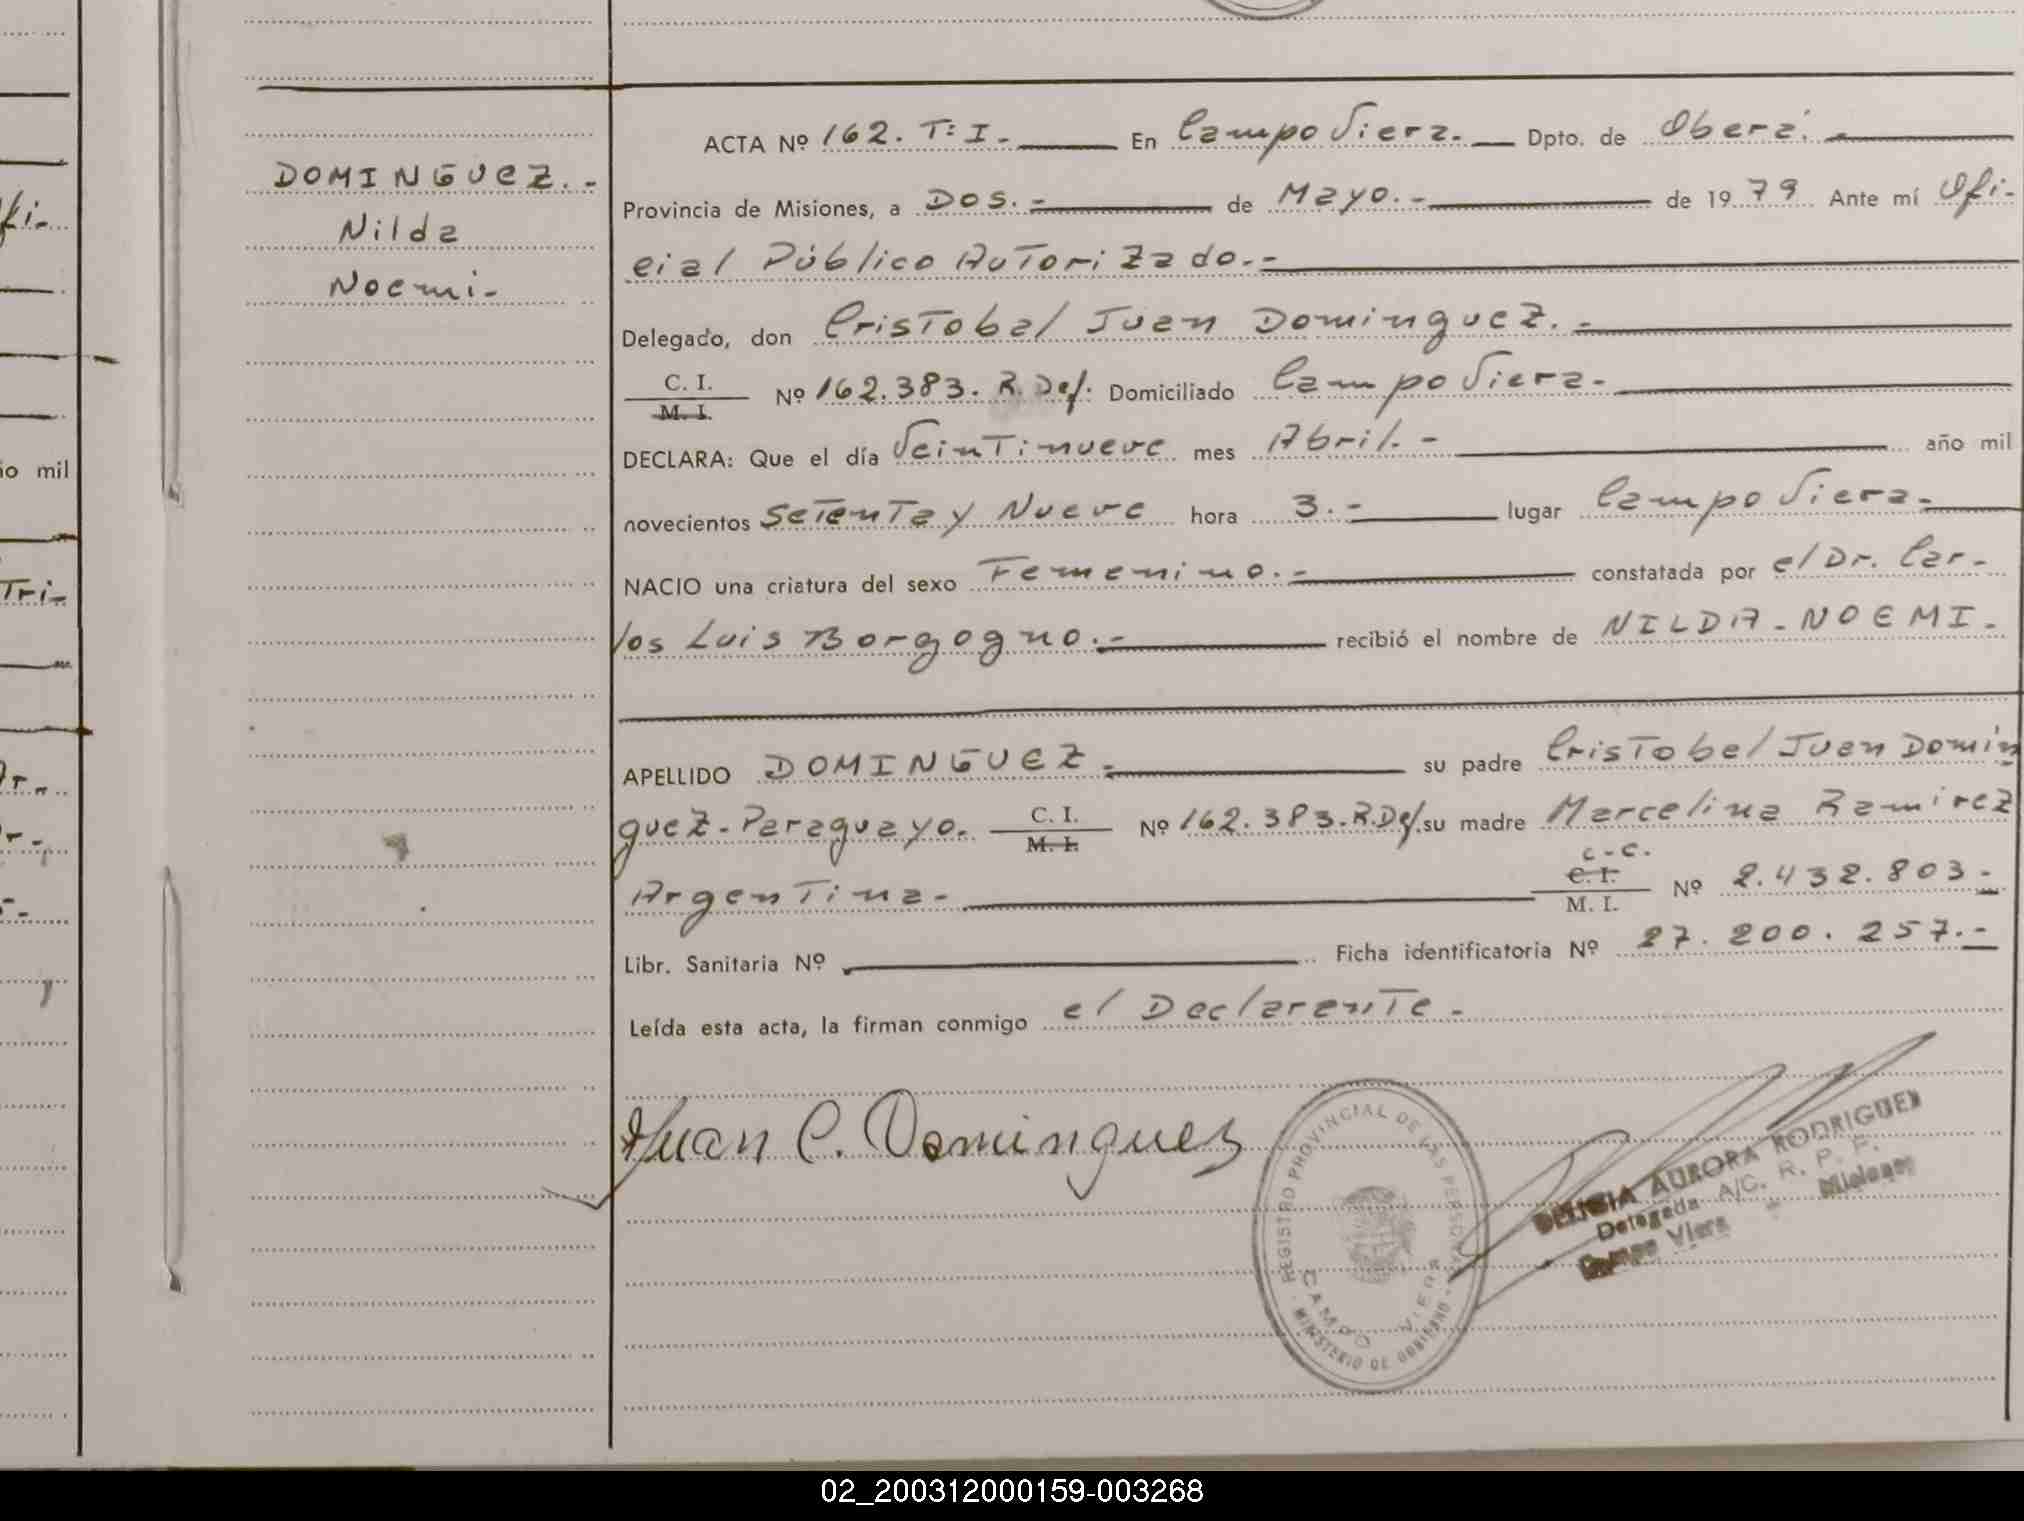 DOMINGUEZ.-
Nilda
Noemi-
ACTA Nº 162. T: I.- En Campo Viera.- Dpto. de Oberá.-
Provincia de Misiones, a Dos.- de Mayo.- de 1979 Ante mí Ofi-
cial Público Autorizado.-
Delegado, don Cristobal Juan Dominguez.-
C. I.
M. I.
Nº 162.383. R. Def. Domiciliado Campo Viera.-
DECLARA: Que el día Veintinueve mes Abril.- año mil
novecientos Setenta y Nueve hora 3.- lugar Campo Viera.-
NACIO una criatura del sexo Femenino.- constatada por el Dr. Car-
los Luis Borgogno.- recibió el nombre de NILDA-NOEMI-
APELLIDO DOMINGUEZ.- su padre Cristobal Juan Domin
guez-Paraguayo. C. I. Nº 162.383.R.Def. su madre Marcelina Ramirez
M. I.
c-c.
Argentina- C. I. Nº 2.432.803-
M. I.
Libr. Sanitaria Nº Ficha identificatoria Nº 27.200.257.-
Leída esta acta, la firman conmigo el Declarante-
Juan C. Dominguez
REGISTRO PROVINCIAL DE LAS PERSONAS
CAMPO VIERA
MINISTERIO DE GOBIERNO
AURORA RODRIGUEZ
Delegada A/C. R. P. P.
Campo Viera - Misiones
ño mil
fi-
Tri-
02_200312000159-003268